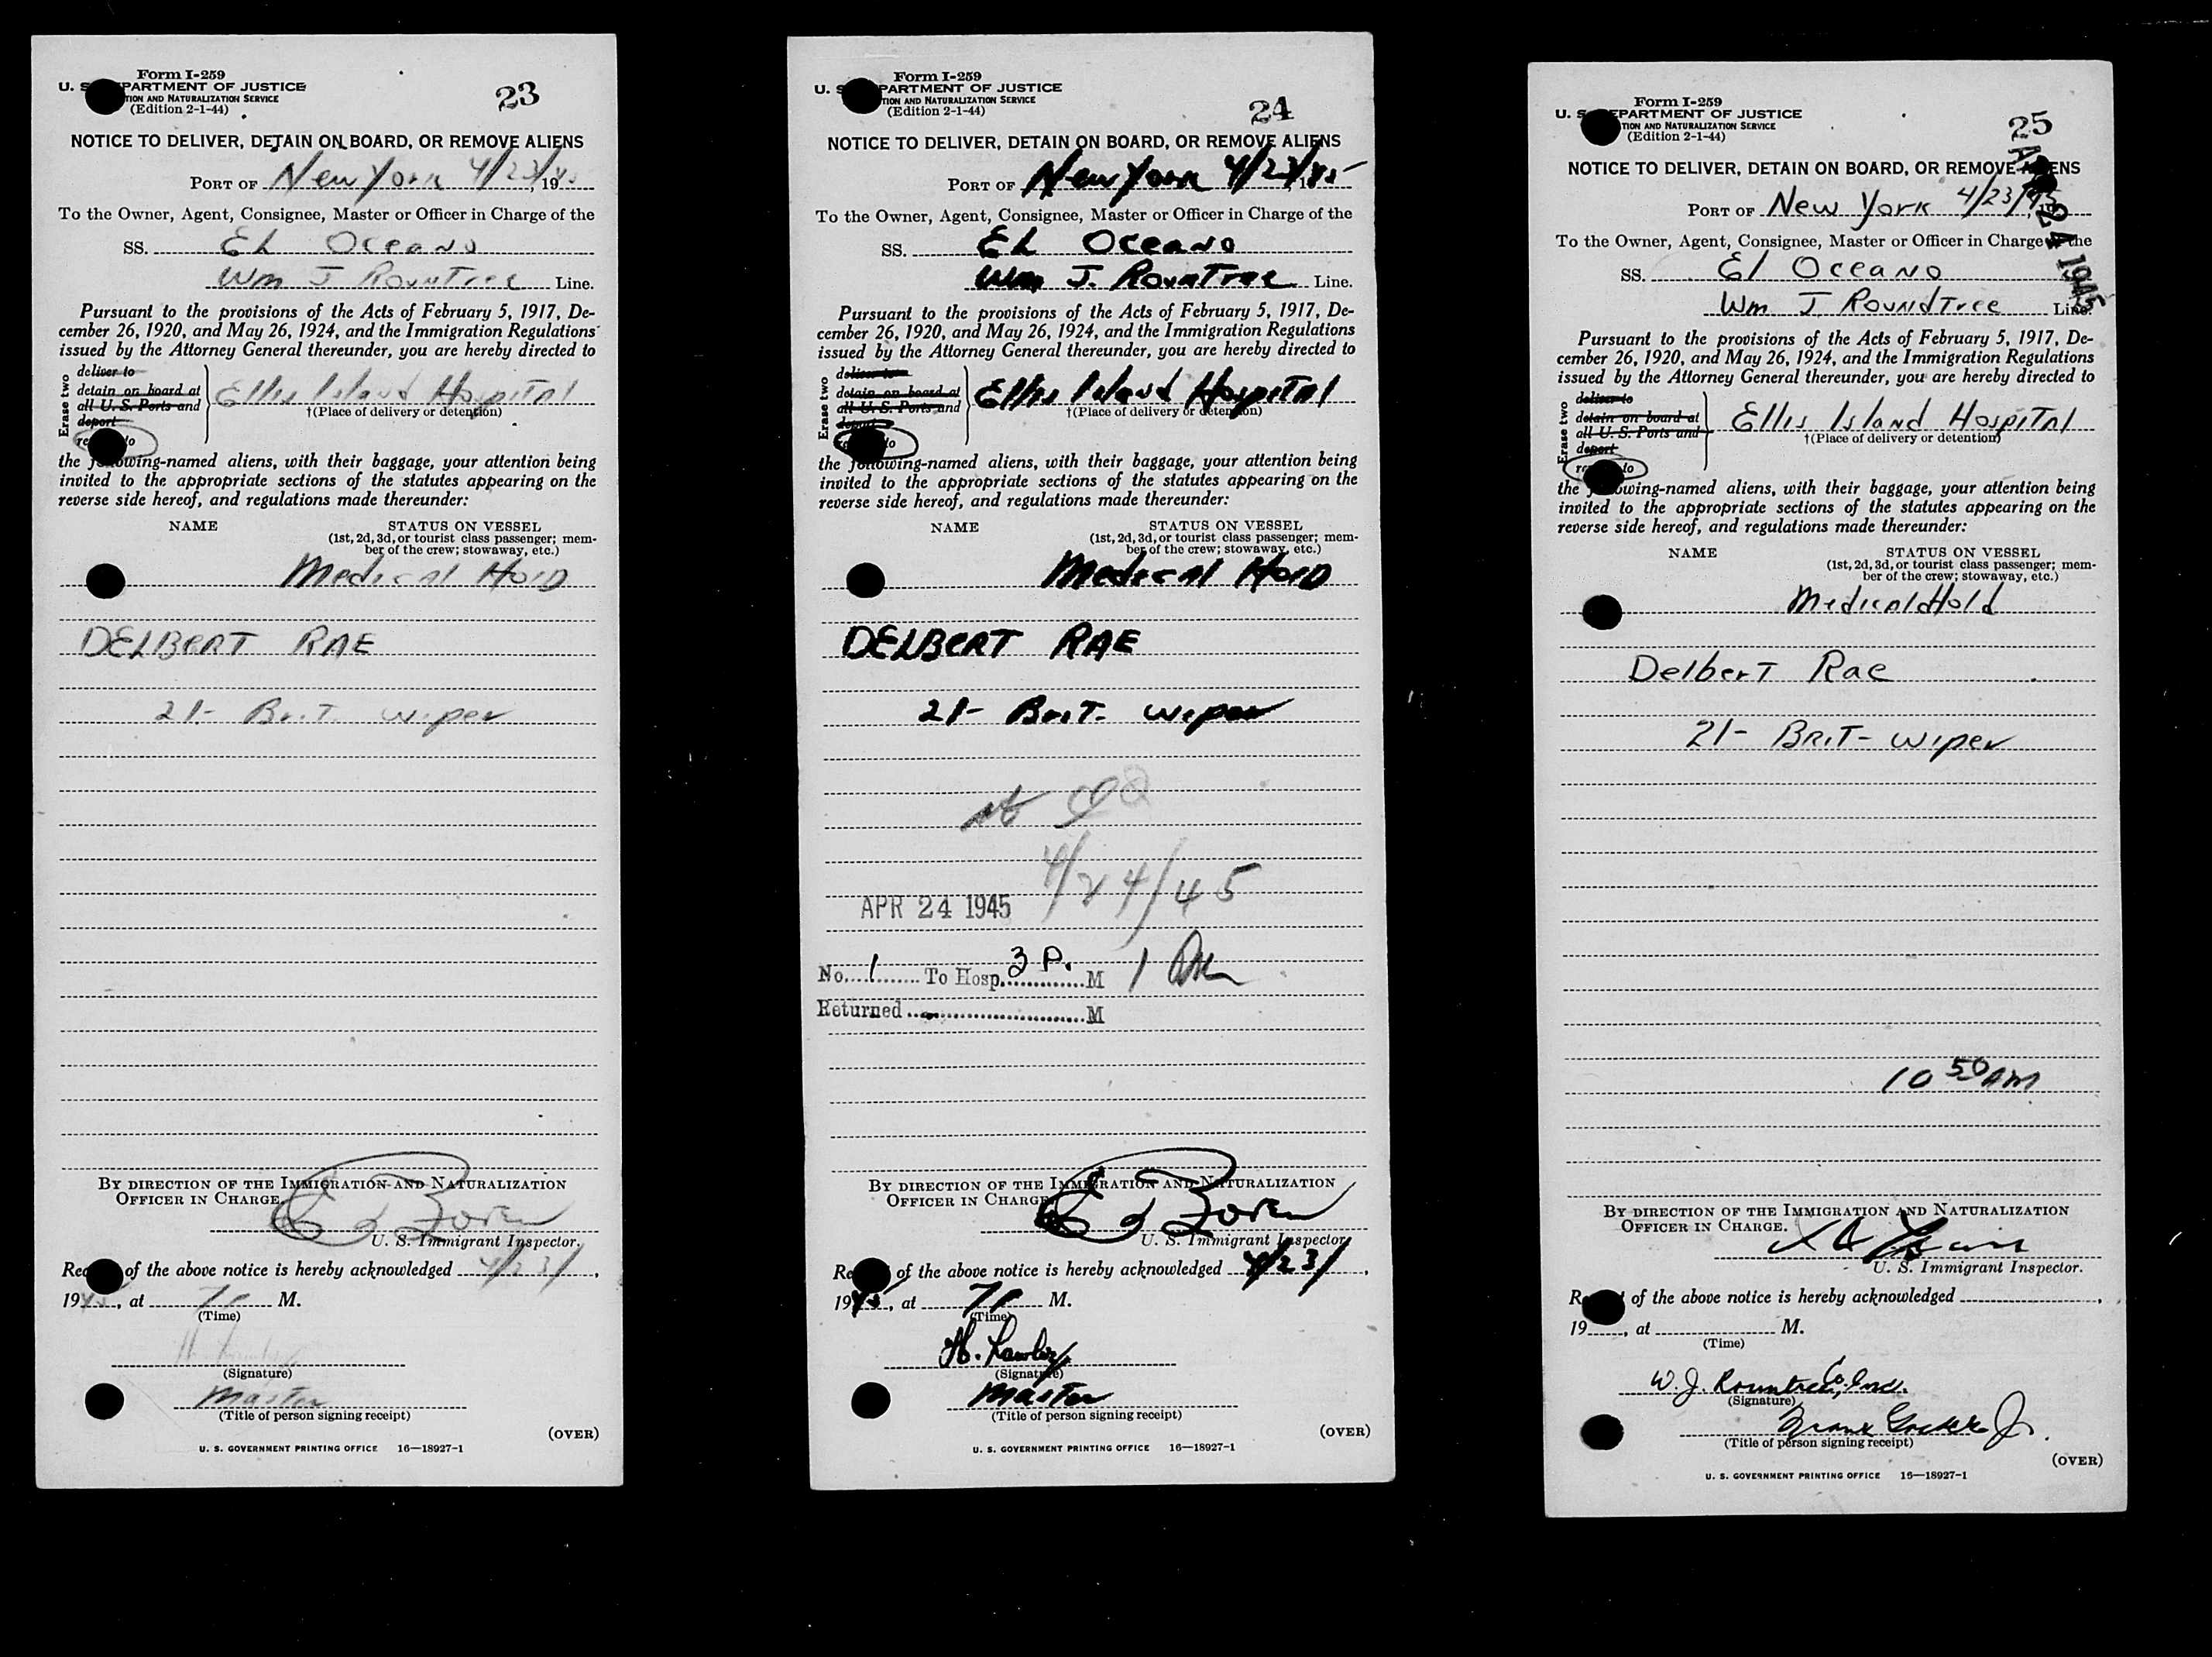 Form I-259
U. S. PARTMENT OF JUSTICE
TION AND NATURALIZATION SERVICE
(Edition 2-1-44)
23
NOTICE TO DELIVER, DETAIN ON BOARD, OR REMOVE ALIENS
PORT OF New York 4/23/1945
To the Owner, Agent, Consignee, Master or Officer in Charge of the
SS. EL OCEANO
Wm J ROUNTREE Line.
Pursuant to the provisions of the Acts of February 5, 1917, De-
cember 26, 1920, and May 26, 1924, and the Immigration Regulations
issued by the Attorney General thereunder, you are hereby directed to
Erase two
deliver to
detain on board at
all U. S. Ports and
deport
to
Ellis Island Hospital
†(Place of delivery or detention)
the following-named aliens, with their baggage, your attention being
invited to the appropriate sections of the statutes appearing on the
reverse side hereof, and regulations made thereunder:
NAME STATUS ON VESSEL
(1st, 2d, 3d, or tourist class passenger; mem-
ber of the crew; stowaway, etc.)
Medical Hold
DELBERT RAE
21- Brit. wiper
BY DIRECTION OF THE IMMIGRATION AND NATURALIZATION
OFFICER IN CHARGE.
U. S. Immigrant Inspector.
Rec of the above notice is hereby acknowledged 4/23/
1945, at 7P M.
(Time)
(Signature)
Master
(Title of person signing receipt)
(OVER)
U. S. GOVERNMENT PRINTING OFFICE 16—18927-1
Form I-259
U. S. PARTMENT OF JUSTICE
TION AND NATURALIZATION SERVICE
(Edition 2-1-44)
24
NOTICE TO DELIVER, DETAIN ON BOARD, OR REMOVE ALIENS
PORT OF New York 4/23/1945
To the Owner, Agent, Consignee, Master or Officer in Charge of the
SS. EL OCEANO
Wm J. ROUNTREE Line.
Pursuant to the provisions of the Acts of February 5, 1917, De-
cember 26, 1920, and May 26, 1924, and the Immigration Regulations
issued by the Attorney General thereunder, you are hereby directed to
Erase two
deliver to
detain on board at
all U. S. Ports and
deport
to
Ellis Island Hospital
†(Place of delivery or detention)
the following-named aliens, with their baggage, your attention being
invited to the appropriate sections of the statutes appearing on the
reverse side hereof, and regulations made thereunder:
NAME STATUS ON VESSEL
(1st, 2d, 3d, or tourist class passenger; mem-
ber of the crew; stowaway, etc.)
Medical Hold
DELBERT RAE
21- Brit- wiper
4/24/45
APR 24 1945
No. 1 To Hosp. 3 P. M 1
Returned M
BY DIRECTION OF THE IMMIGRATION AND NATURALIZATION
OFFICER IN CHARGE
U. S. Immigrant Inspector
Re of the above notice is hereby acknowledged 4/23/
1945, at 7P M.
(Time)
H. Lawley
(Signature)
Master
(Title of person signing receipt)
(OVER)
U. S. GOVERNMENT PRINTING OFFICE 16—18927-1
Form I-259
U. S. EPARTMENT OF JUSTICE
TION AND NATURALIZATION SERVICE
(Edition 2-1-44)
25
APR 24 1945
NOTICE TO DELIVER, DETAIN ON BOARD, OR REMOVE ALIENS
PORT OF New York 4/23/45
To the Owner, Agent, Consignee, Master or Officer in Charge of the
SS. El Oceano
Wm J Roundtree Line.
Pursuant to the provisions of the Acts of February 5, 1917, De-
cember 26, 1920, and May 26, 1924, and the Immigration Regulations
issued by the Attorney General thereunder, you are hereby directed to
Erase two
deliver to
detain on board at
all U. S. Ports and
deport
to
Ellis Island Hospital
†(Place of delivery or detention)
the following-named aliens, with their baggage, your attention being
invited to the appropriate sections of the statutes appearing on the
reverse side hereof, and regulations made thereunder:
NAME STATUS ON VESSEL
(1st, 2d, 3d, or tourist class passenger; mem-
ber of the crew; stowaway, etc.)
Medical Hold
Delbert Rae
21- Brit- wiper
10 50 AM
BY DIRECTION OF THE IMMIGRATION AND NATURALIZATION
OFFICER IN CHARGE.
U. S. Immigrant Inspector.
R of the above notice is hereby acknowledged
19 , at M.
(Time)
W. J. Rountree Co. Inc.
(Signature)
Jr.
(Title of person signing receipt)
(OVER)
U. S. GOVERNMENT PRINTING OFFICE 16—18927-1